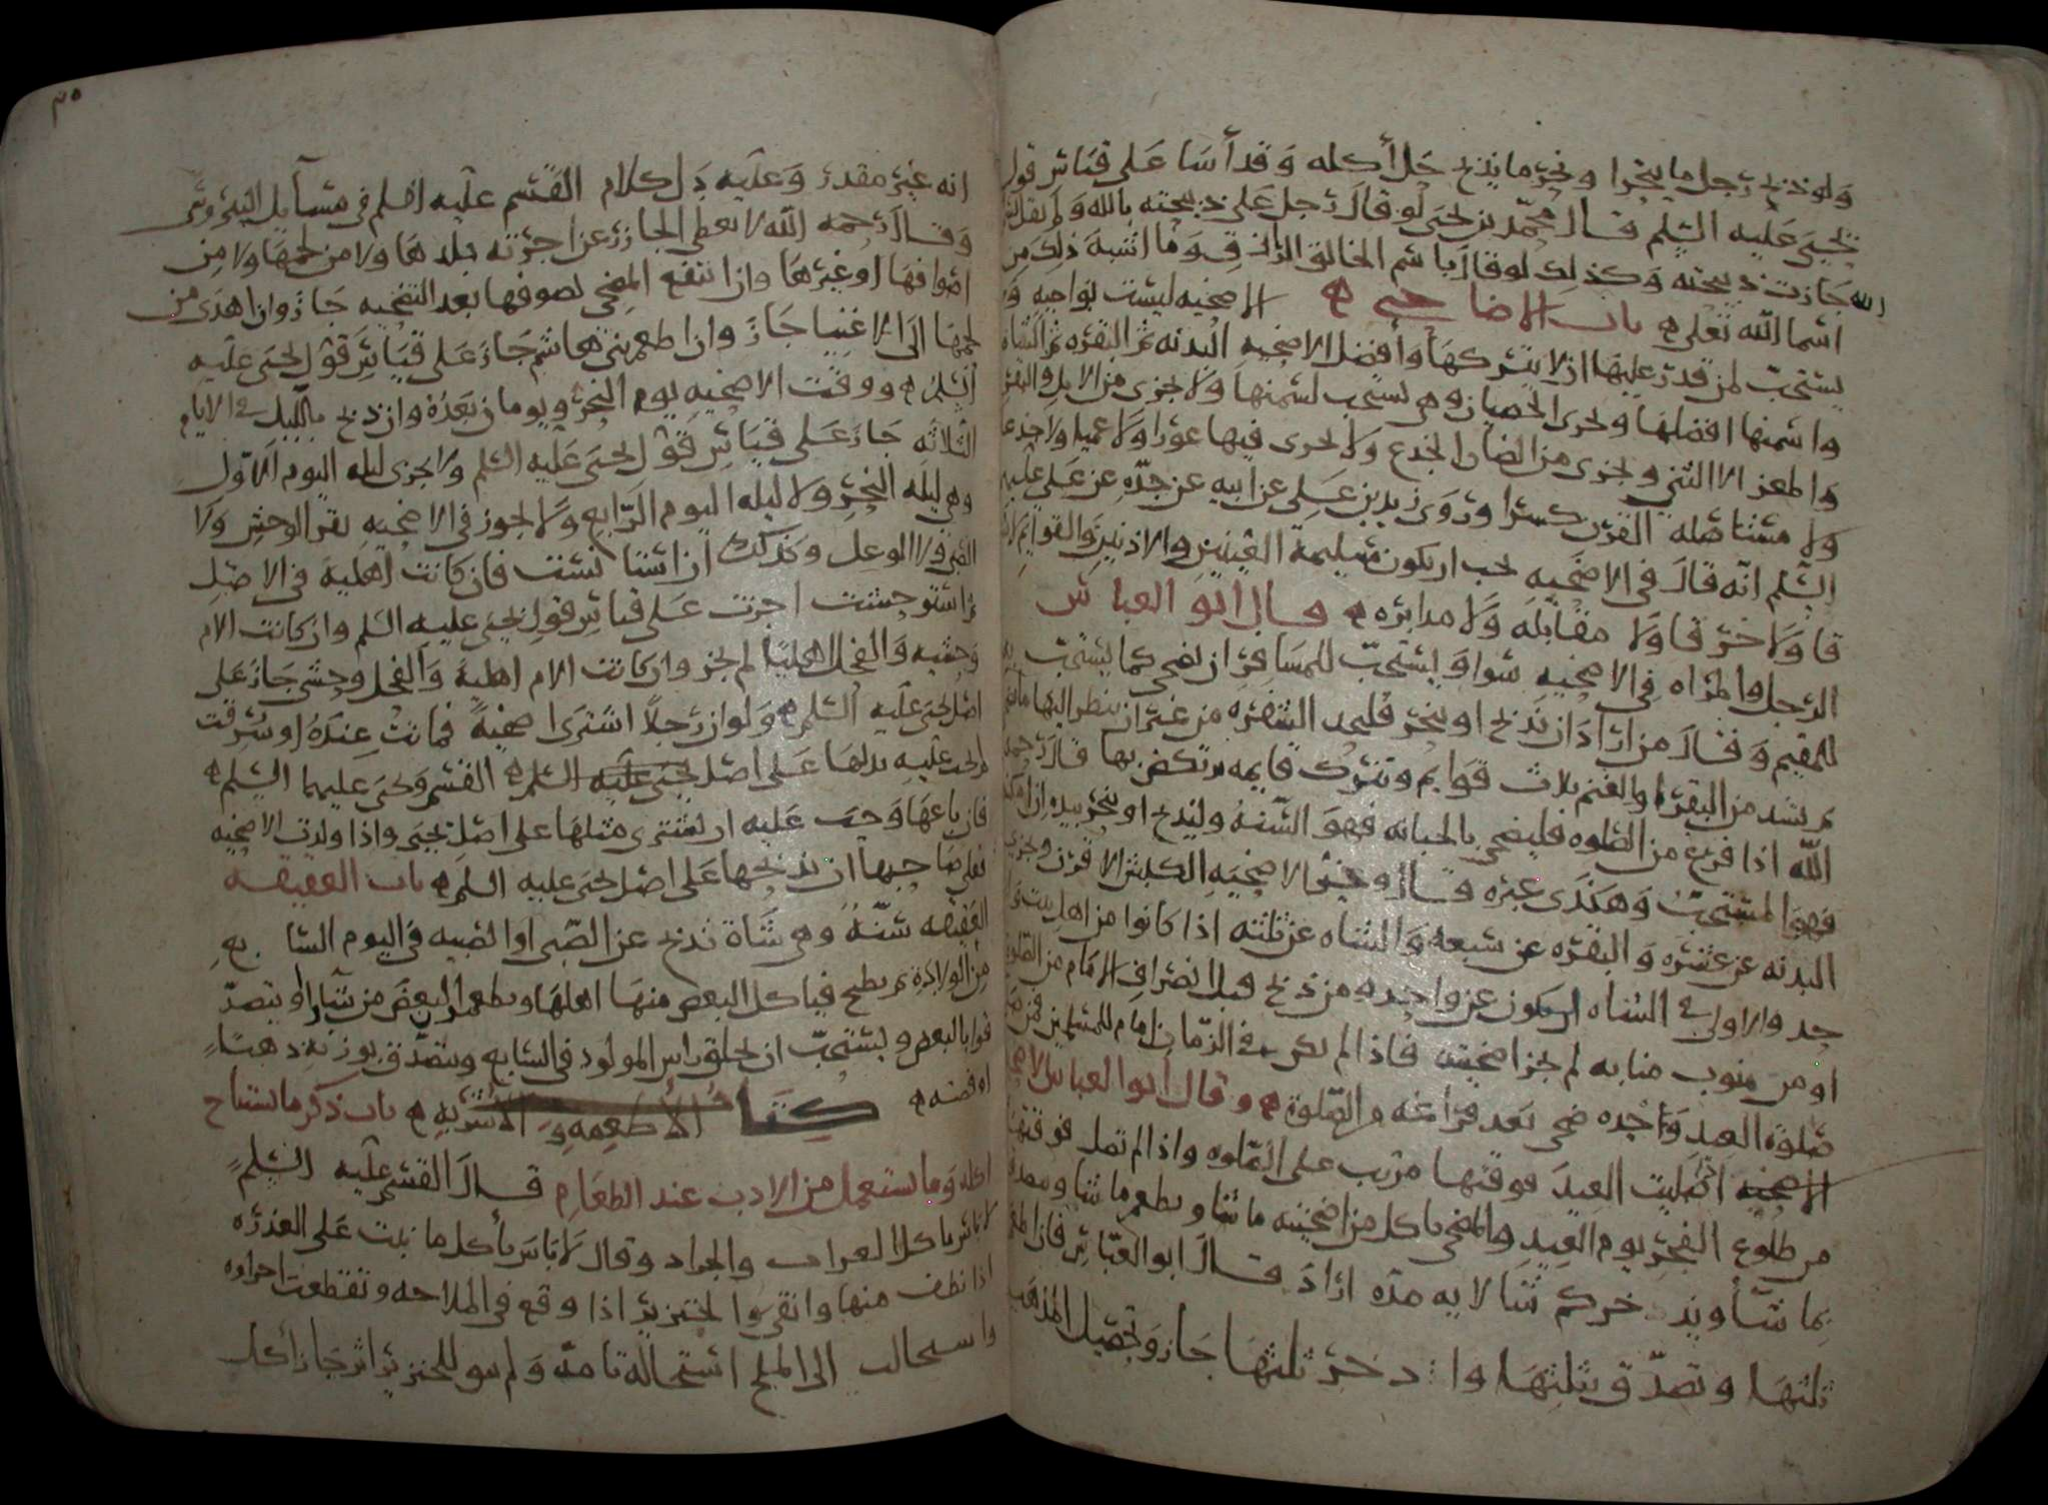 ولو ذبح رجل ما ينحر او نحر ما يذبح حل أكله وقد أسا على قياس قول
يحيى عليه السلم قال محمد بن يحيى لو قال رجل على ذبيحته بالله ولم يقل بسم
الله جازت ذبيحته وكذلك لو قال باسم الخالق الرازق وما اشبه ذلك من
اسما الله تعلى باب الاضاحي الاضحيه ليست بواجبه و
يستحب لمن قدر عليها ان لا يتركها وأفضل الاضحيه البدنه ثم البقره ثم الشاه
واسمنها افضلها ويجزى الخصيان وهي تستحب لسمنها ولا يجزى من الابل والبقر
والمعز الا الثني ويجزى من الضان الجذع ولا يجزى فيها عورا ولا عميا ولا جدعا
ولا مستاصله القرن كسرا وروى زيد بن علي عن ابيه عن جده عن علي عليه
السلم انه قال في الاضحيه يجب ان يكون سليمة العينين والاذنين والقوايم لا شر
قا ولا خرقا ولا مقابله ولا مدابره قال ابو العباس
الرجل والمراه في الاضحيه سوا ويستحب للمسافر ان يضحي كما يستحب
للمقيم وقال من اراد ان يذبح او ينحر فليحد الشفره من غير ان ينظر اليها
ثم تشد من البقره والغنم ثلاث قوايم وتترك قايمه تركض بها قال رحمه
الله اذا فرغ من الصلوه فليضحي بالجبانه فهو السنه وليذبح او ينحر بيده ان امكنه
فهو المستحب وهكذى غيره قال وخير الاضحيه الكبش الاقرن وتجزى
البدنه عن عشره والبقره عن سبعه والشاه عن ثلثه اذا كانوا من اهل بيت وا
حد والاولى في الشاه ان يكون عن واحد ومن ذبح قبل انصراف الامام من الصلوه
او من ينوب منابه لم تجز اضحيته فاذا لم يكن في الزمان امام للمسلمين فمن صلى
صلوة العيد وحده ضحى بعد فراغه من الصلوة وقال ابو العباس الاصح
الاضحيه ان صليت العيد فوقتها مرتب على الصلوه واذا لم تصل فوقتها
من طلوع الفجر يوم العيد والمضحي ياكل من اضحيته ما شا ويطعم ما شا ويتصدق
بما شا ويدخر كم شا لايه مده اراد قال ابو العباس فان اطعم
ثلثها وتصدق بثلثها وادخر ثلثها جاز وتحصيل المذهب
٣٥
انه غير مقدر وعليه دل كلام القسم عليه السلم في مسايل النيروسي
وقال رحمه الله لا يعطى الجازر عن اجرته جلدها ولا من لحمها ولا من
اصوافها او غيرها وان انتفع المضحي بصوفها بعد التضحيه جاز وان اهدى من
لحمها الى الاغنيا جاز وان اطعم بني هاشم جاز على قياس قول يحيى عليه
السلم ووقت الاضحيه يوم النحر ويومان بعده وان ذبح بالليل في الايام
الثلاثه جاز على قياس قول يحيى عليه السلم ولا يجزى ليله اليوم الاول
وهي ليله النحر ولا ليله اليوم الرابع ولا يجوز في الاضحيه بقر الوحش ولا
الظبي ولا الوعل وكذلك ان استانست فان كانت اهليه في الاصل
ثم استوحشت اجزت على قياس قول يحيى عليه السلم وان كانت الام
وحشيه والفحل اهليا لم يجز وان كانت الام اهلية والفحل وحشي جاز على
اصل يحيى عليه السلم ولو ان رجلا اشترى اضحية فماتت عنده او سرقت
لم يجب عليه بدلها على اصل يحيى عليه السلم القسم ويحيى عليهما السلم
فان باعها وجب عليه ان يشتري مثلها على اصل يحيى واذا ولدت الاضحيه
فعلى صاحبها ان يذبحها على اصل يحيى عليه السلم باب العقيقه
العقيقه سنة وهي شاة تذبح عن الصبي او الصبيه في اليوم السابع
من الولاده ثم يطبخ فياكل البعض منها اهلها ويطعمون البعض من شاوا ويتصد
قوا بالبعض ويستحب ان يحلق راس المولود في السابع ويتصدق بوزنه ذهبا
او فضه كتاب الأطعمه والأشربه باب ذكر ما يستباح
اكله وما يستعمل من الادب عند الطعام قال القسم عليه السلم
لا باس باكل الغراب والجراد وقال لا باس بأكل ما نبت على العذره
اذا نظف منها وانقي والخنزير اذا وقع في الملاحه وتقطعت اجزاوه
واستحالت الى الملح استحالة تامة ولم يبق للخنزير اثر جاز أكل